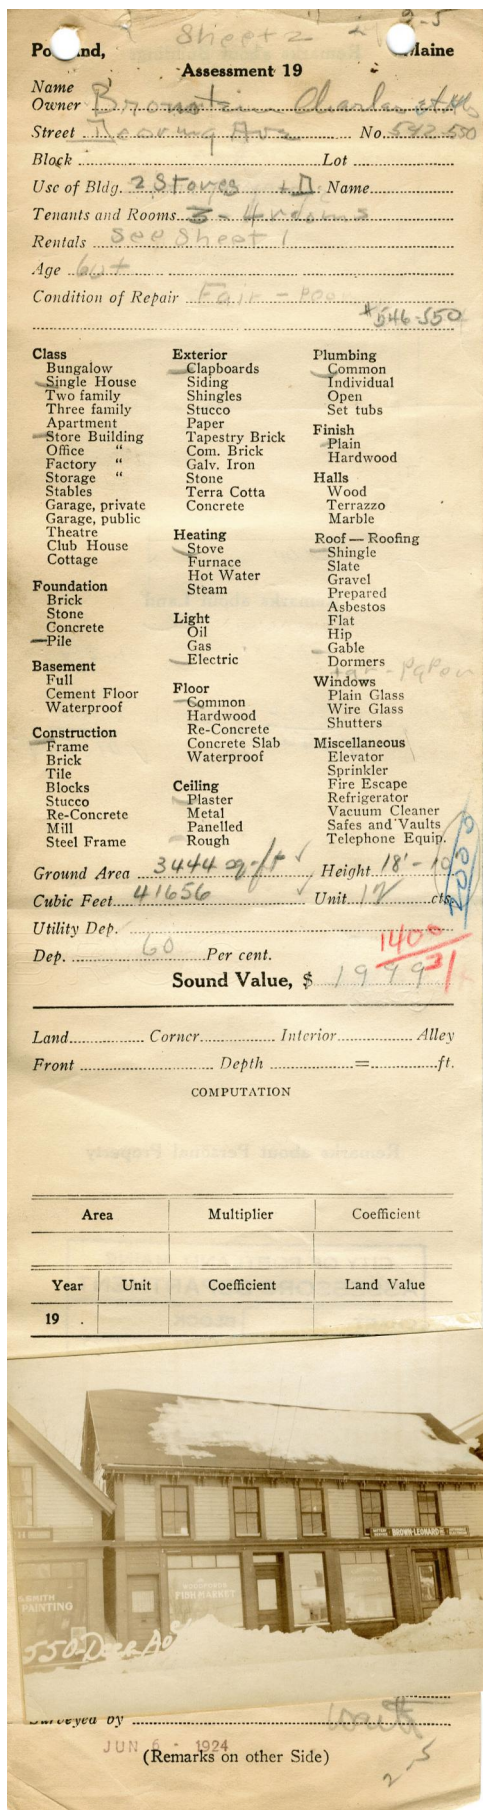 Sheet 2
2-5
Portland, Maine
Assessment 19
Name
Owner Bronstein Charles et als
Street Deering Ave No. 542-550
Block Lot
Use of Bldg. 2 Stores + D Name
Tenants and Rooms 3 - 4 rooms
Rentals See Sheet 1
Age 60+
Condition of Repair Fair - Poor
#546-550
Class
Bungalow
Single House
Two family
Three family
Apartment
Store Building
Office "
Factory "
Storage "
Stables
Garage, private
Garage, public
Theatre
Club House
Cottage
Foundation
Brick
Stone
Concrete
Pile
Basement
Full
Cement Floor
Waterproof
Construction
Frame
Brick
Tile
Blocks
Stucco
Re-Concrete
Mill
Steel Frame
Exterior
Clapboards
Siding
Shingles
Stucco
Paper
Tapestry Brick
Com. Brick
Galv. Iron
Stone
Terra Cotta
Concrete
Heating
Stove
Furnace
Hot Water
Steam
Light
Oil
Gas
Electric
Floor
Common
Hardwood
Re-Concrete
Concrete Slab
Waterproof
Ceiling
Plaster
Metal
Panelled
Rough
Plumbing
Common
Individual
Open
Set tubs
Finish
Plain
Hardwood
Halls
Wood
Terrazzo
Marble
Roof — Roofing
Shingle
Slate
Gravel
Prepared
Asbestos
Flat
Hip
Gable
Dormers
tar-paper
Windows
Plain Glass
Wire Glass
Shutters
Miscellaneous
Elevator
Sprinkler
Fire Escape
Refrigerator
Vacuum Cleaner
Safes and Vaults
Telephone Equip.
2000
Ground Area 3444 sq-ft Height 18'-10
Cubic Feet 41656 Unit 12 cts.
Utility Dep.
1400
Dep. 60 Per cent.
31
Sound Value, $ 1999
Land Corner Interior Alley
Front Depth = ft.
COMPUTATION
Area Multiplier Coefficient
Year Unit Coefficient Land Value
19
BROWN-LEONARD
SMITH
PAINTING
WOODFORDS
FISH MARKET
550-Deer Ave
Surveyed by
JUN 6 - 1924
(Remarks on other Side)
2-5